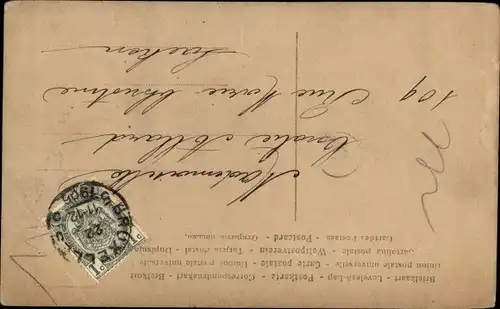 Briefkaart - Levelező-Lap - Postkarte - Correspondenzkarte - Brefkort
Union postale universelle - Carte postale - Unione postale universale
Cartolina postale - Weltpostverein - Tarjeta postal - Dopisnice
Cartes Postales - Postcard -
Mademoiselle
Allard
109 Rue Marie Christine
Laeken
BRUXELLES
11-12
1905